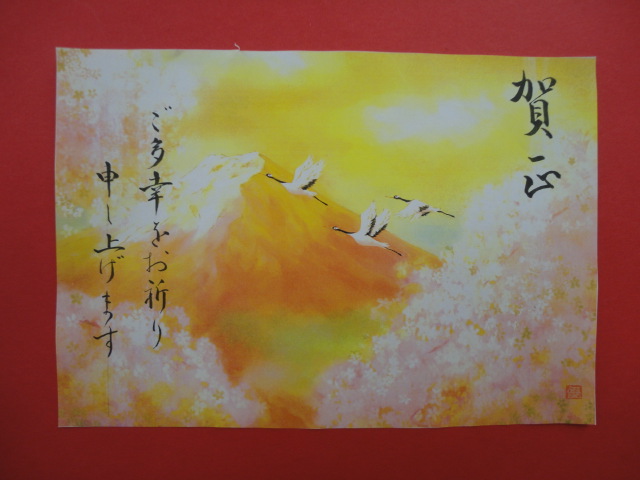 賀正
ご多幸をお祈り
申し上げます